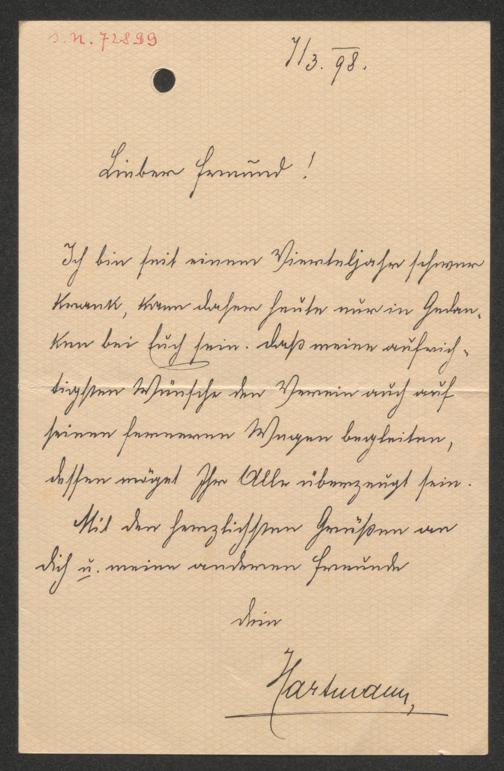 I.N. 72899
7/3. 98.
Lieber Freund!
Ich bin seit einem Vierteljahr schwer
krank, kann daher heute nur in Gedan-
ken bei Euch sein. Daß meine aufrich-
tigsten Wünsche den Verein auch auf
seinen ferneren Wegen begleiten,
dessen möget Ihr Alle überzeugt sein.
Mit den herzlichsten Grüßen an
Dich u. meine anderen Freunde
Dein
Hartmann,